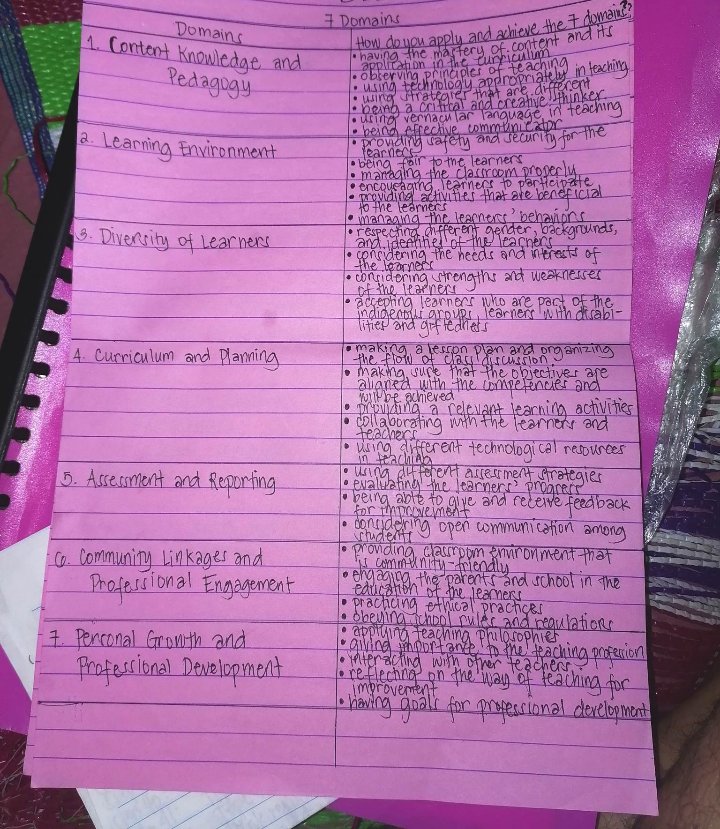 7 Domains
Domains
How do you apply and achieve the 7 domains?
1. Content Knowledge and
Pedagogy
• having the mastery of content and its
application in the curriculum
• observing principles of teaching
• using technology appropriately in teaching
• using strategies that are different
• being a critical and creative thinker
• using vernacular language in teaching
• being effective communicator
2. Learning Environment
• providing safety and security for the
learners
• being fair to the learners
• managing the classroom properly
• encouraging learners to participate
• providing activities that are beneficial
to the learners
• managing the learners' behaviors
3. Diversity of Learners
• respecting different gender, backgrounds,
and identities of the learners
• considering the needs and interests of
the learners
• considering strengths and weaknesses
of the learners
• accepting learners who are part of the
indigenous groups, learners with disabi-
lities and giftedness
4. Curriculum and Planning
• making a lesson plan and organizing
the flow of class discussion
• making sure that the objectives are
aligned with the competencies and
will be achieved
• providing a relevant learning activities
• collaborating with the learners and
teachers
• using different technological resources
in teaching
5. Assessment and Reporting
• using different assessment strategies
• evaluating the learners' progress
• being able to give and receive feedback
for improvement
• considering open communication among
students
6. Community Linkages and
Professional Engagement
• providing classroom environment that
is community-friendly
• engaging the parents and school in the
education of the learners
• practicing ethical practices
• obeying school rules and regulations
7. Personal Growth and
Professional Development
• applying teaching philosophies
• giving importance to the teaching profession
• interacting with other teachers
• reflecting on the way of teaching for
improvement
• having goals for professional development